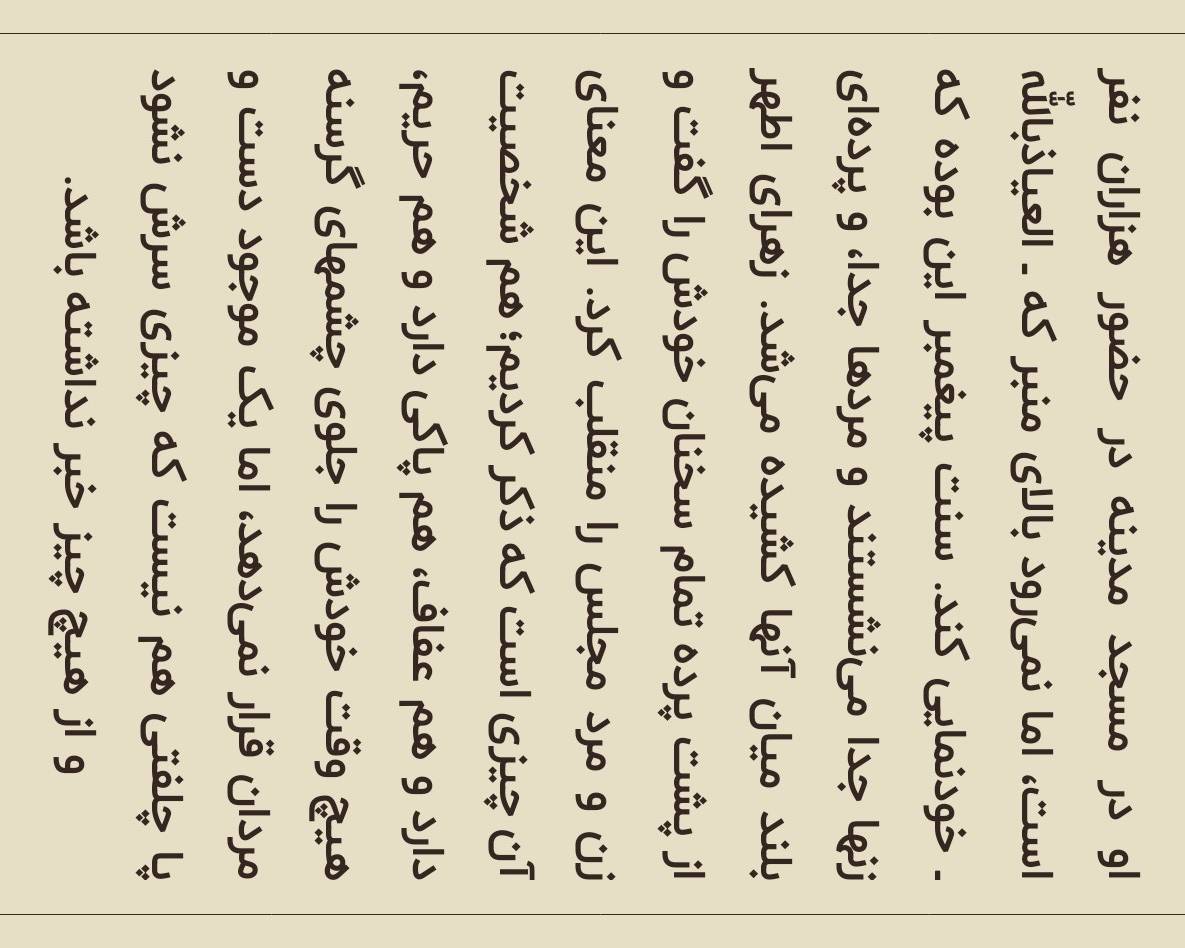 او در مسجد مدینه در حضور هزاران نفر
است، اما نمی‌رود بالای منبر که - العیاذباللّه
- خودنمایی کند. سنت پیغمبر این بوده که
زنها جدا می‌نشستند و مردها جدا، و پرده‌ای
بلند میان آنها کشیده می‌شد. زهرای اطهر
از پشت پرده تمام سخنان خودش را گفت و
زن و مرد مجلس را منقلب کرد. این معنای
آن چیزی است که ذکر کردیم؛ هم شخصیت
دارد و هم عفاف، هم پاکی دارد و هم حریم،
هیچ وقت خودش را جلوی چشمهای گرسنه
مردان قرار نمی‌دهد، اما یک موجود دست و
پا چلفتی هم نیست که چیزی سرش نشود
و از هیچ چیز خبر نداشته باشد.